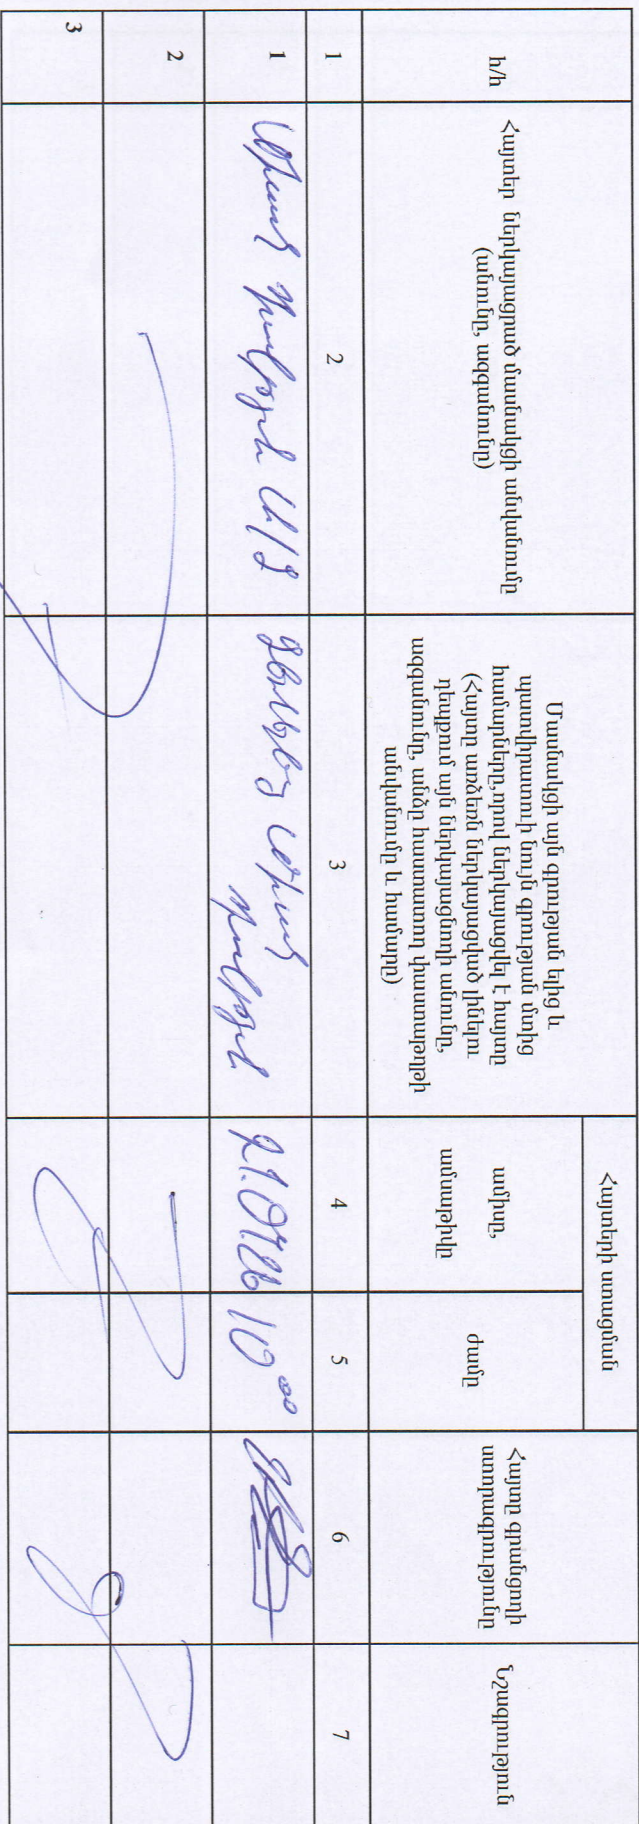 հ/հ
Հայտեր ներկայացրած մասնակցի անվանումը
(անունը, ազգանունը)
Մասնակցի այն գրության ելից և
պատվիրատուի նույն գրության մտից
համարները, որով ներկայացվել է հայտը
(Հայտը առձեռն ներկայացված լինելու
դեպքում այն ներկայացնողի անունը,
ազգանունը, անձը հաստատող փաստաթղթի
անվանումը և համարը)
Հայտերի ստացման
ամիսը,
ամսաթիվը
ժամը
Հայտը գրանցողի
ստորագրությունը
Նշագրություն
1
2
3
4
5
6
7
1
Ա/Ձ
21.07.26
10⁰⁰
2
3